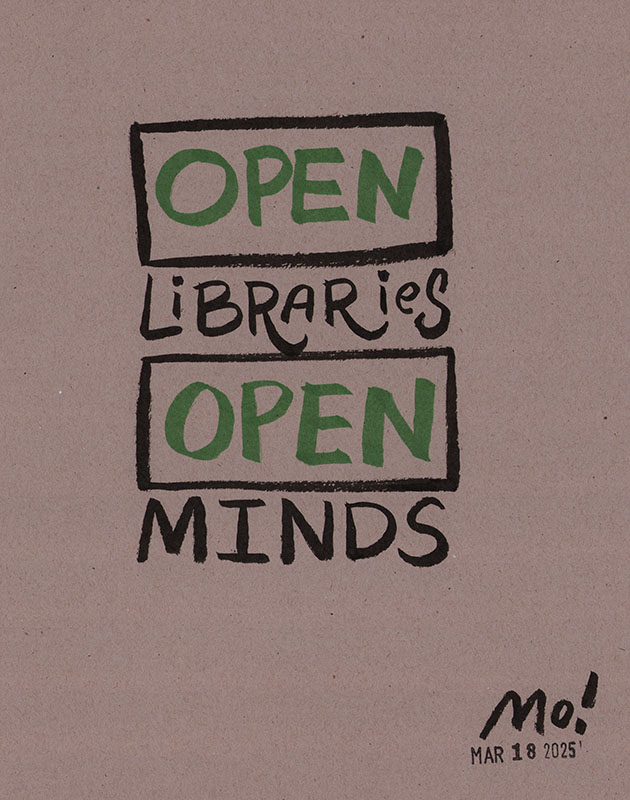 OPEN
LiBRARieS
OPEN
MINDS
Mo!
MAR 18 2025